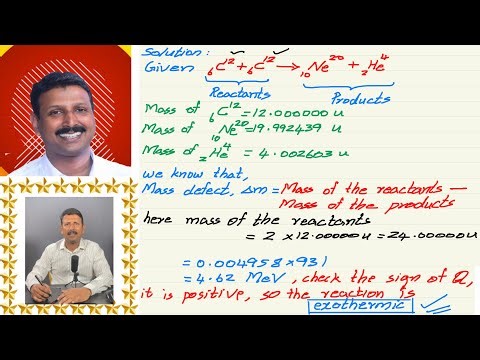 Solution:
Given ₆C¹² + ₆C¹² → ₁₀Ne²⁰ + ₂He⁴
Reactants Products
Mass of ₆C¹² = 12.000000 u
Mass of ₁₀Ne²⁰ = 19.992439 u
Mass of ₂He⁴ = 4.002603 u
we know that,
Mass defect, Δm = Mass of the reactants —
Mass of the products
here mass of the reactants
= 2 × 12.00000 u = 24.00000 u
= 0.004958 × 931
= 4.62 MeV, check the sign of Q,
it is positive, so the reaction is
exothermic